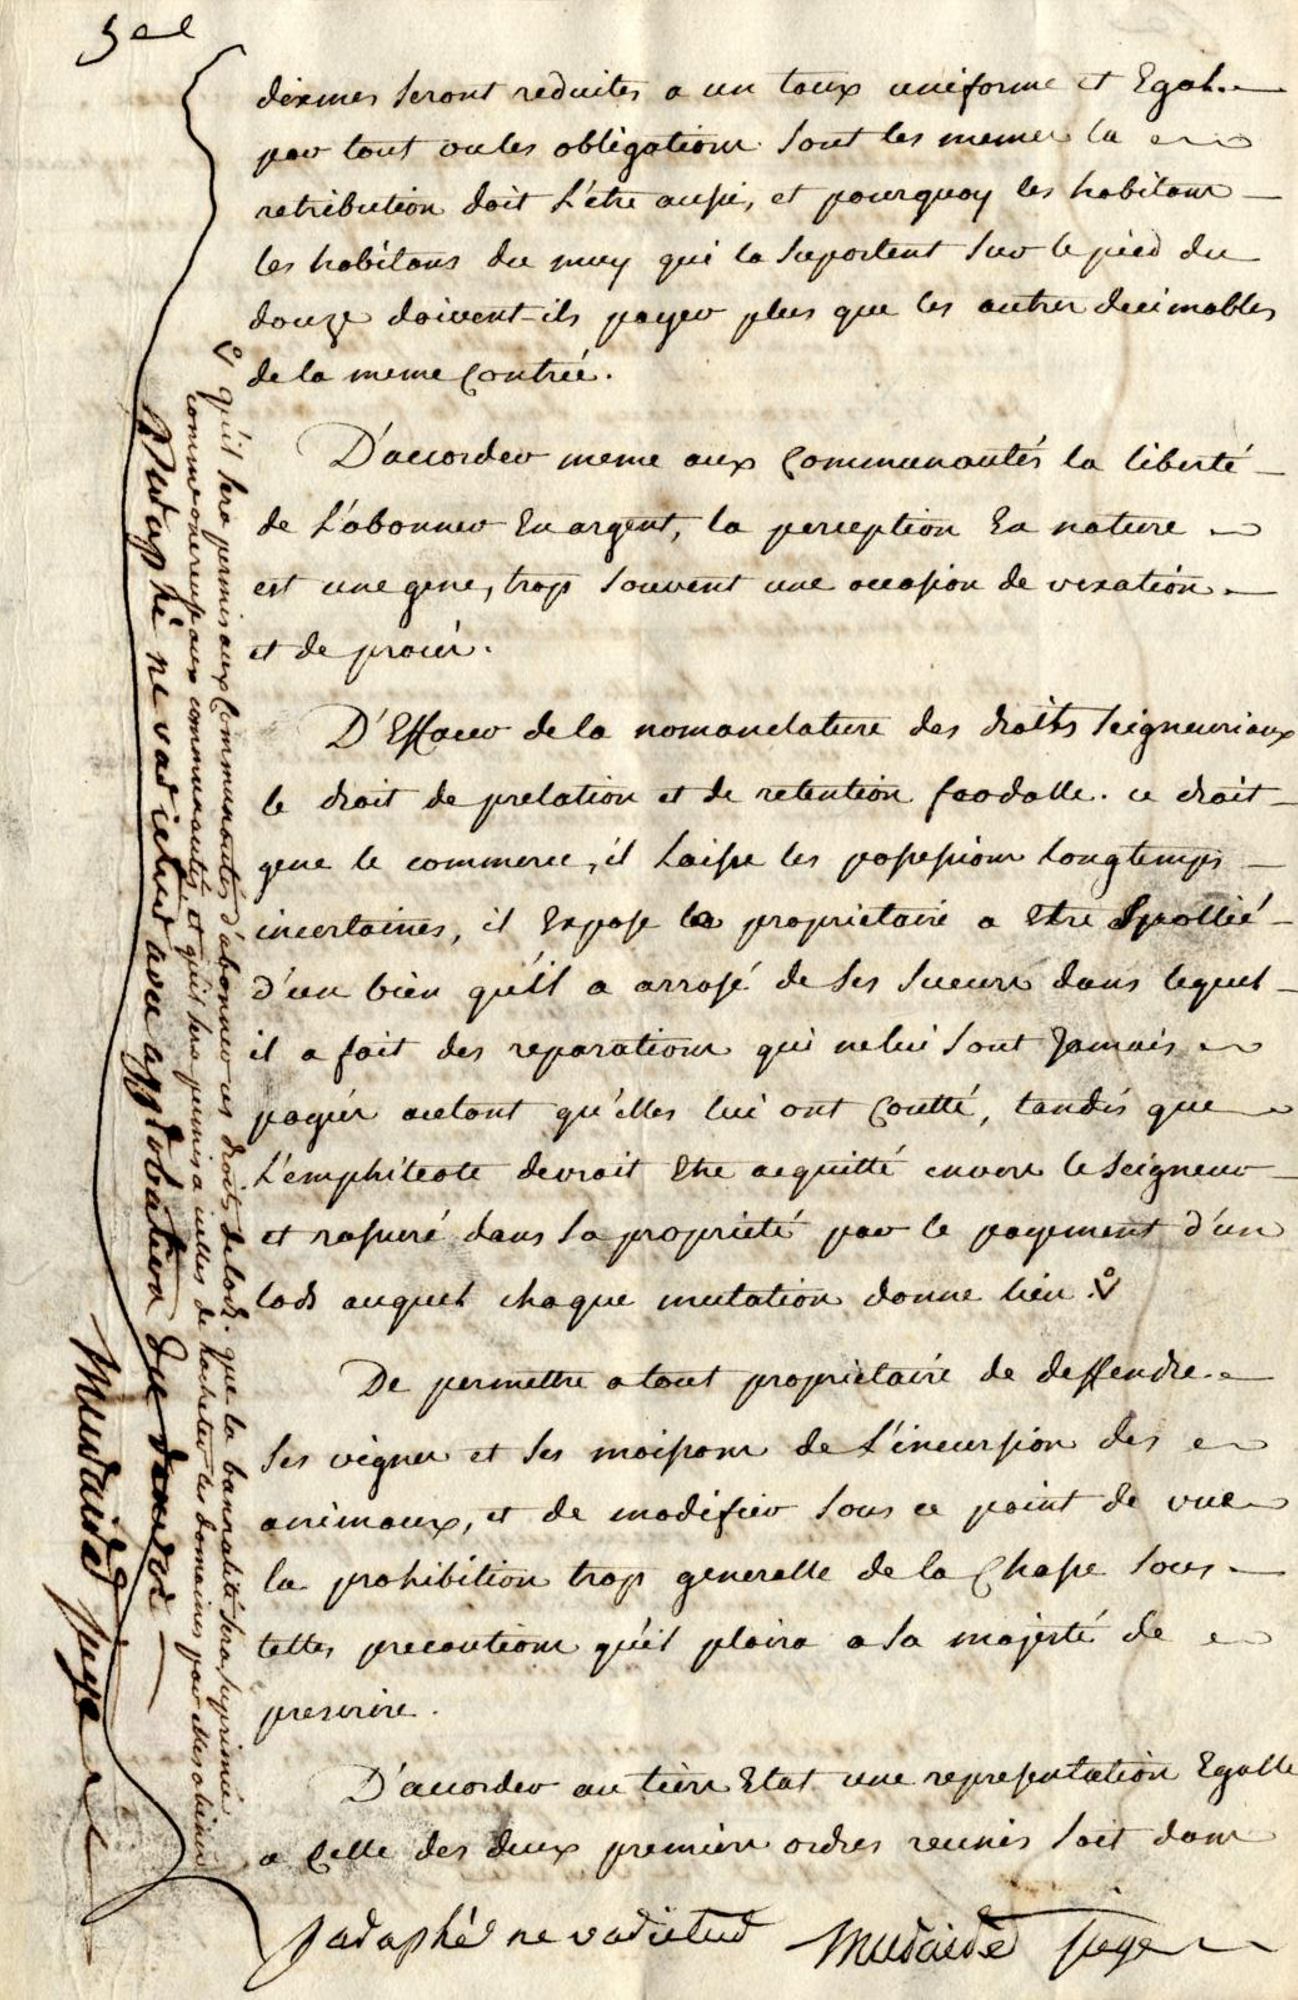 5el
dixmes seront reduites a un taux uniforme et Egal.
par tout ou les obligations sont les memes la
retribution doit l'etre aussi, et pourquoy les habitans
les habitans du muy qui la suportent sur le pied du
douze doivent-ils payer plus que les autres decimables
de la meme Contrée.
D'accorder meme aux Communautés la liberté
de l'abonner En argent, la perception En nature
est une gene, trop souvent une occasion de vexation
et de procés.
D'Effacer de la nomanclature des droits seigneuriaux
le droit de prelation et de retention feodalle. ce droit
gene le commerce, il laisse les possessions longtemps
incertaines, il Expose le proprietaire a Etre Spollié
d'un bien qu'il a arrosé de ses sueurs dans lequel
il a fait des reparations qui ne lui sont Jamais
payées autant qu'elles lui ont Coutté, tandis que
L'emphiteote devroit Etre acquitté envers le seigneur
et rassuré dans sa proprieté par le payement d'un
lods auquel chaque mutation donne lieu.
De permettre a tout proprietaire de deffendre
ses vignes et ses moissons de l'incursion des
animaux, et de modifier sous ce point de vue
la prohibition trop generalle de la Chasse sous
telles precautions qu'il plaira a sa majesté de
prescrire.
D'accorder au tiers Etat une representation Egalle
a Celle des deux premiers ordres reunis soit dans
paraphé ne varietur juge
qu'il sera permis aux Communautés d'abonner ces droits de lods. que la banalité sera suprimée
comme onereuse aux communautés, et qu'il sera permis a icelles de racheter les domaines par elles alienés
paraphé ne varietur avec approbation du
juge